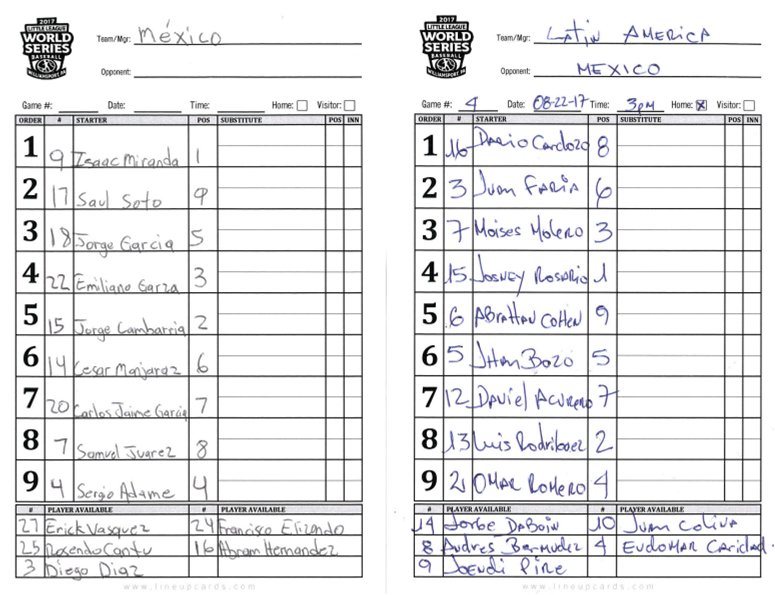 2017
LITTLE LEAGUE
WORLD
SERIES
BASEBALL
WILLIAMSPORT, PA
Team/Mgr: México
Opponent:
Game #: Date: Time: Home: Visitor:
ORDER # STARTER POS SUBSTITUTE POS INN
1 9 Isaac Miranda 1
2 17 Saul Soto 9
3 18 Jorge Garcia 5
4 22 Emiliano Garza 3
5 15 Jorge Lambarria 2
6 14 Cesar Manjaraz 6
7 20 Carlos Jaime Garcia 7
8 7 Samuel Juarez 8
9 4 Sergio Adame 4
# PLAYER AVAILABLE # PLAYER AVAILABLE
27 Erick Vasquez 24 Francisco Elizondo
25 Rosendo Cantu 16 Abram Hernandez
3 Diego Diaz
www.lineupcards.com
2017
LITTLE LEAGUE
WORLD
SERIES
BASEBALL
WILLIAMSPORT, PA
Team/Mgr: Latin AMERICA
Opponent: MEXICO
Game #: 4 Date: 08-22-17 Time: 3pm Home: X Visitor:
ORDER # STARTER POS SUBSTITUTE POS INN
1 16 DARIO Cardozo 8
2 3 Juan FARIA 6
3 7 Moises Molero 3
4 15 JOSNEY ROSARIO 1
5 6 ABRAHAN COHEN 9
6 5 JHAN BOZO 5
7 12 DAVIEL ACURERO 7
8 13 Luis Rodriguez 2
9 21 OMAR ROMERO 4
# PLAYER AVAILABLE # PLAYER AVAILABLE
14 Jorge DABOIN 10 JUAN COLINA
8 Andres Bermudez 4 EUDOMAR CARIDAD.
9 JOENDI PIRE
www.lineupcards.com